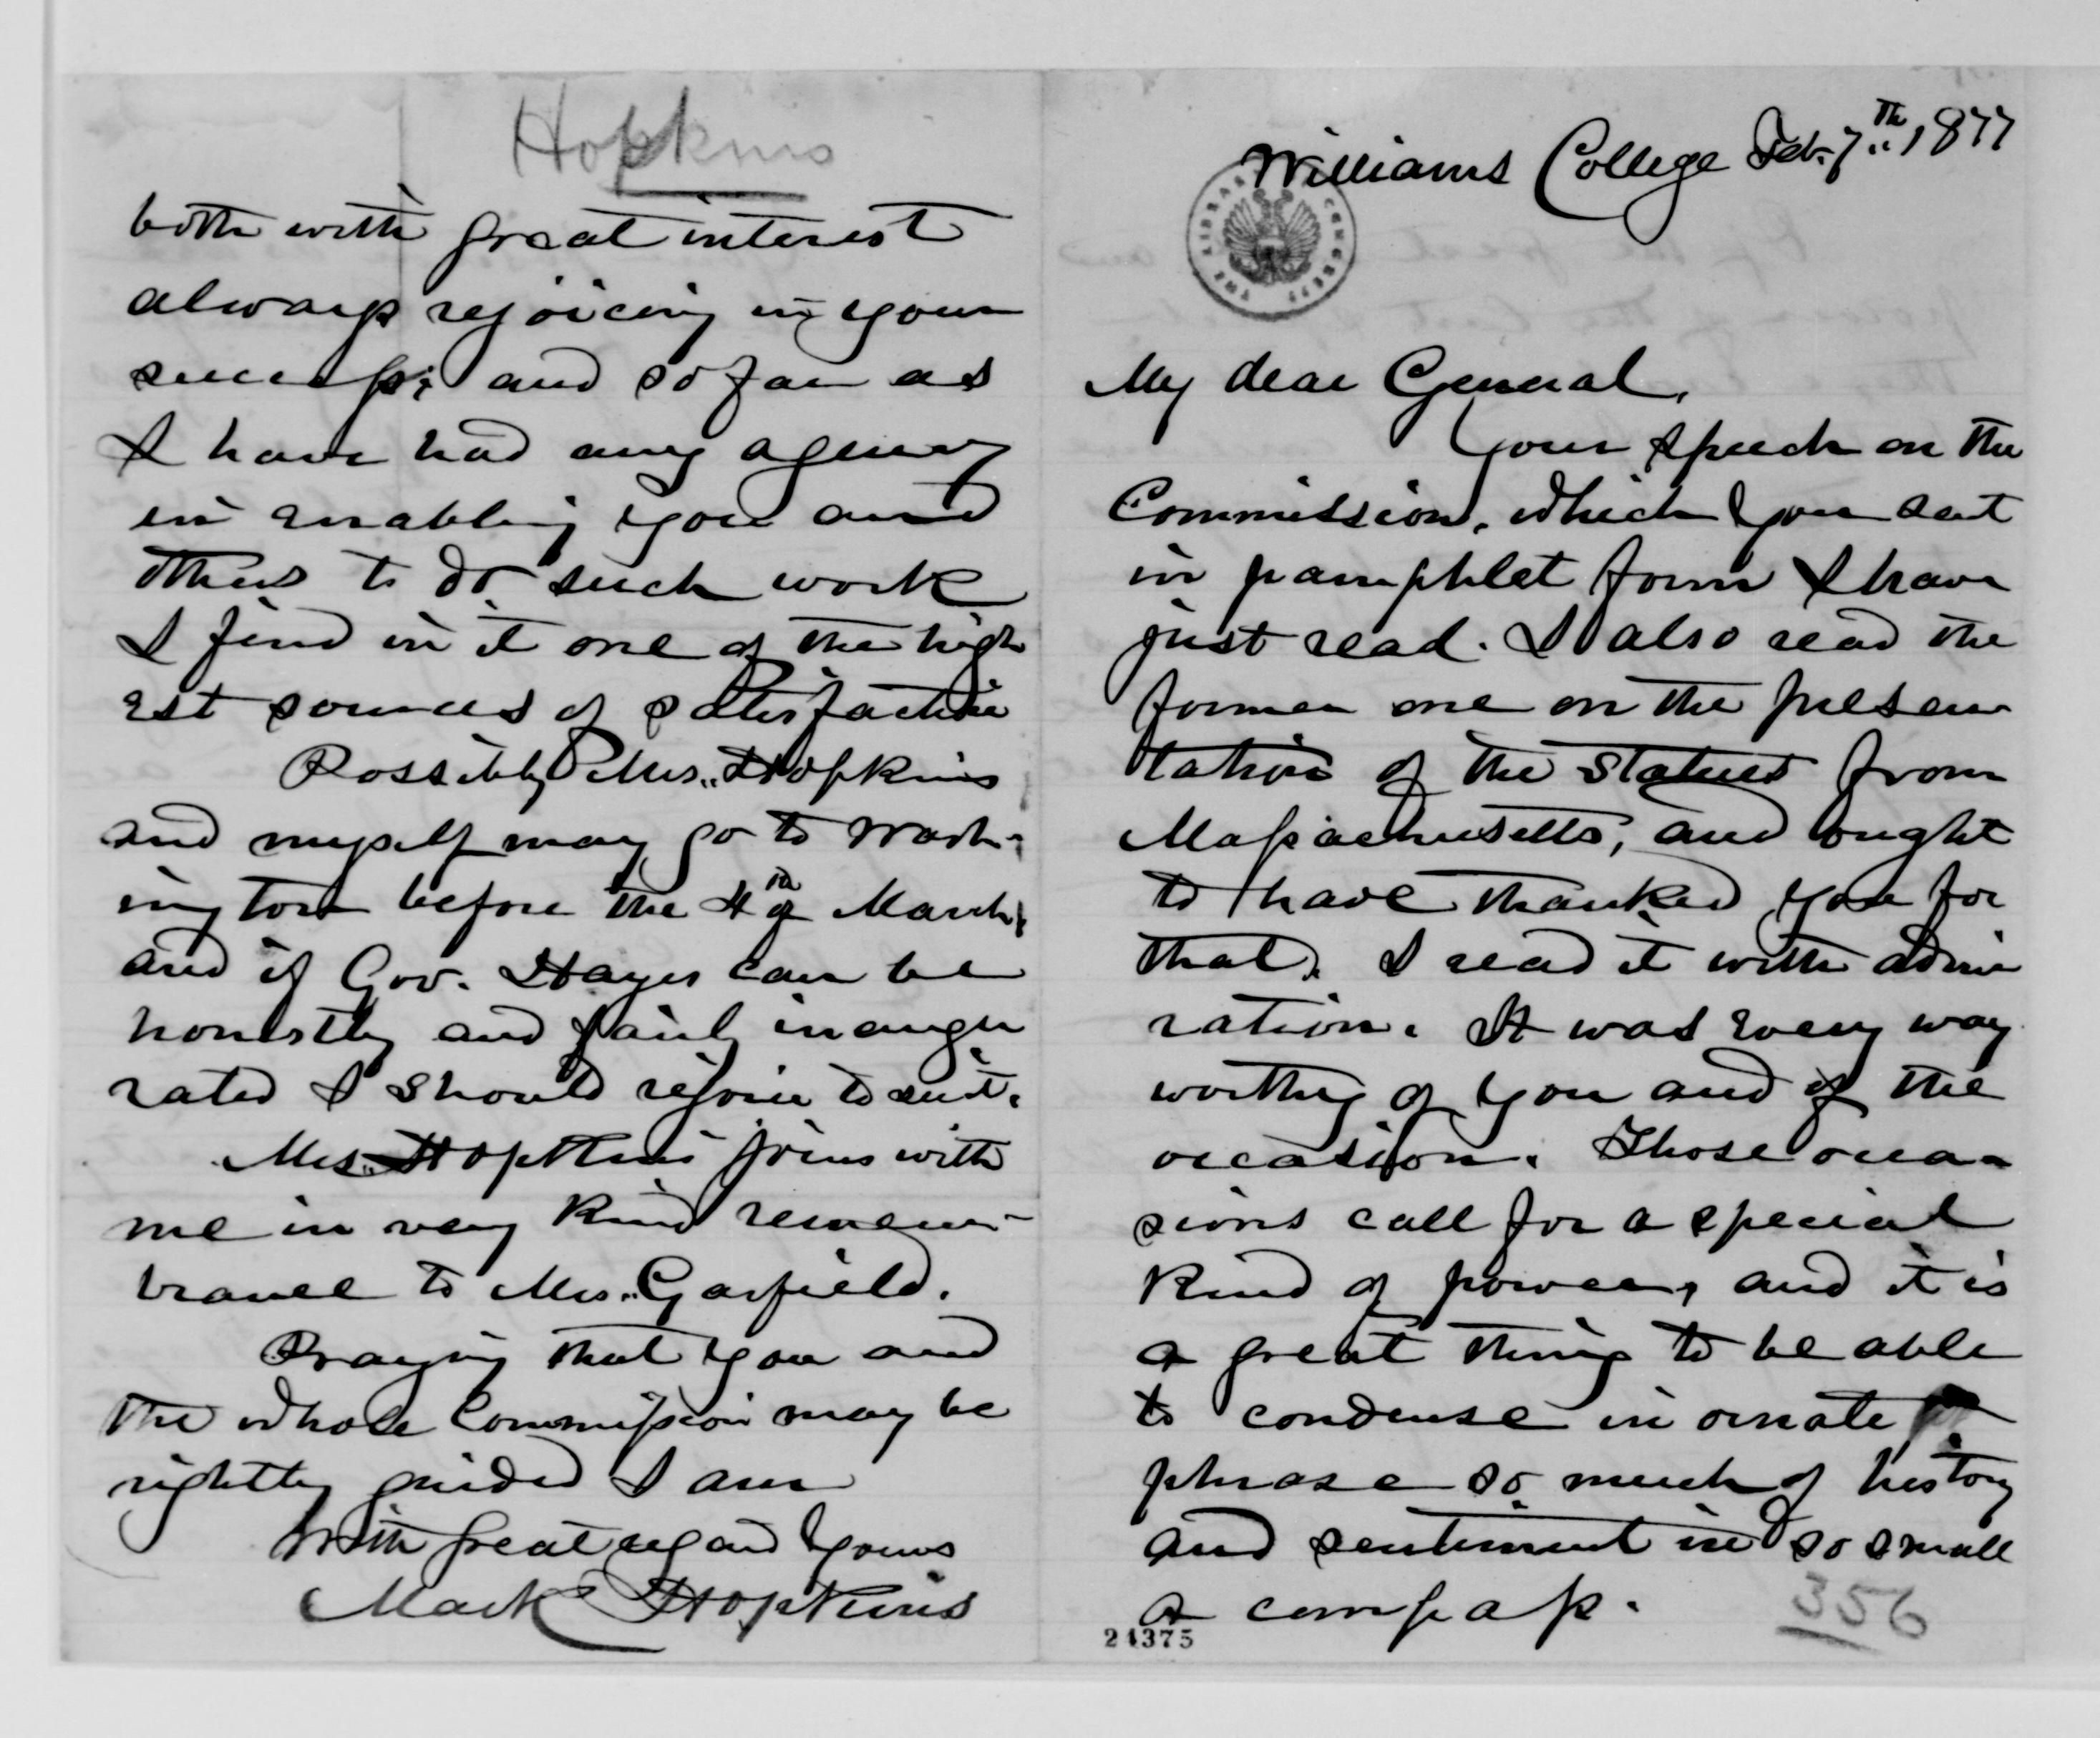 Williams College Feb. 7th 1877
THE LIBRARY OF CONGRESS
My dear General,
Your speech on the
Commission, which you sent
in pamphlet form I have
just read. I also read the
former one on the presen
tation of the statues from
Massachusetts, and ought
to have thanked you for
that. I read it with admi
ration. It was every way
worthy of you and of the
occasion. Those occa-
sions call for a special
kind of power, and it is
a great thing to be able
to condense in ornate
phrase so much of history
and sentiment in so small
a compass.
356
24375
Hopkins
both with great interest
always rejoicing in your
success; and so far as
I have had any agency
in enabling you and
others to do such work
I find in it one of the high
est sources of satisfaction
Possibly Mrs. Hopkins
and myself may go to Wash-
ington before the 4th of March,
and if Gov. Hayes can be
honestly and fairly inaugu
rated I should rejoice to see it.
Mrs. Hopkins joins with
me in very kind remem-
brance to Mrs. Garfield.
Praying that you and
the whole Commission may be
rightly guided I am
With great regard yours
Mark Hopkins